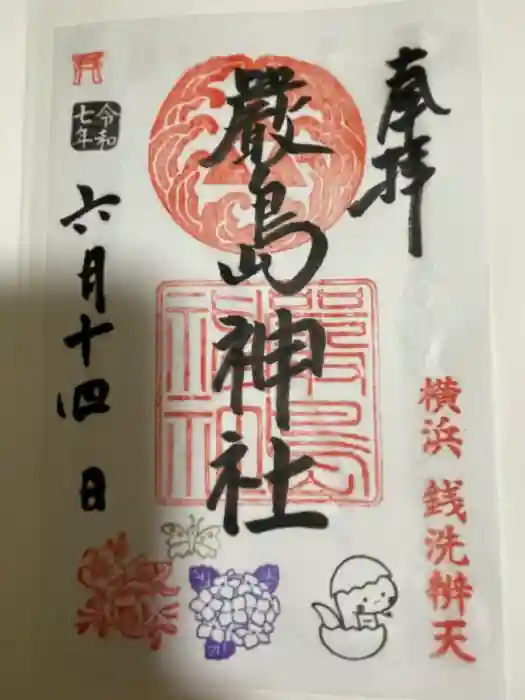 奉拝
嚴島神社
嚴島神社
令和七年
六月十四日
横浜 銭洗辨天